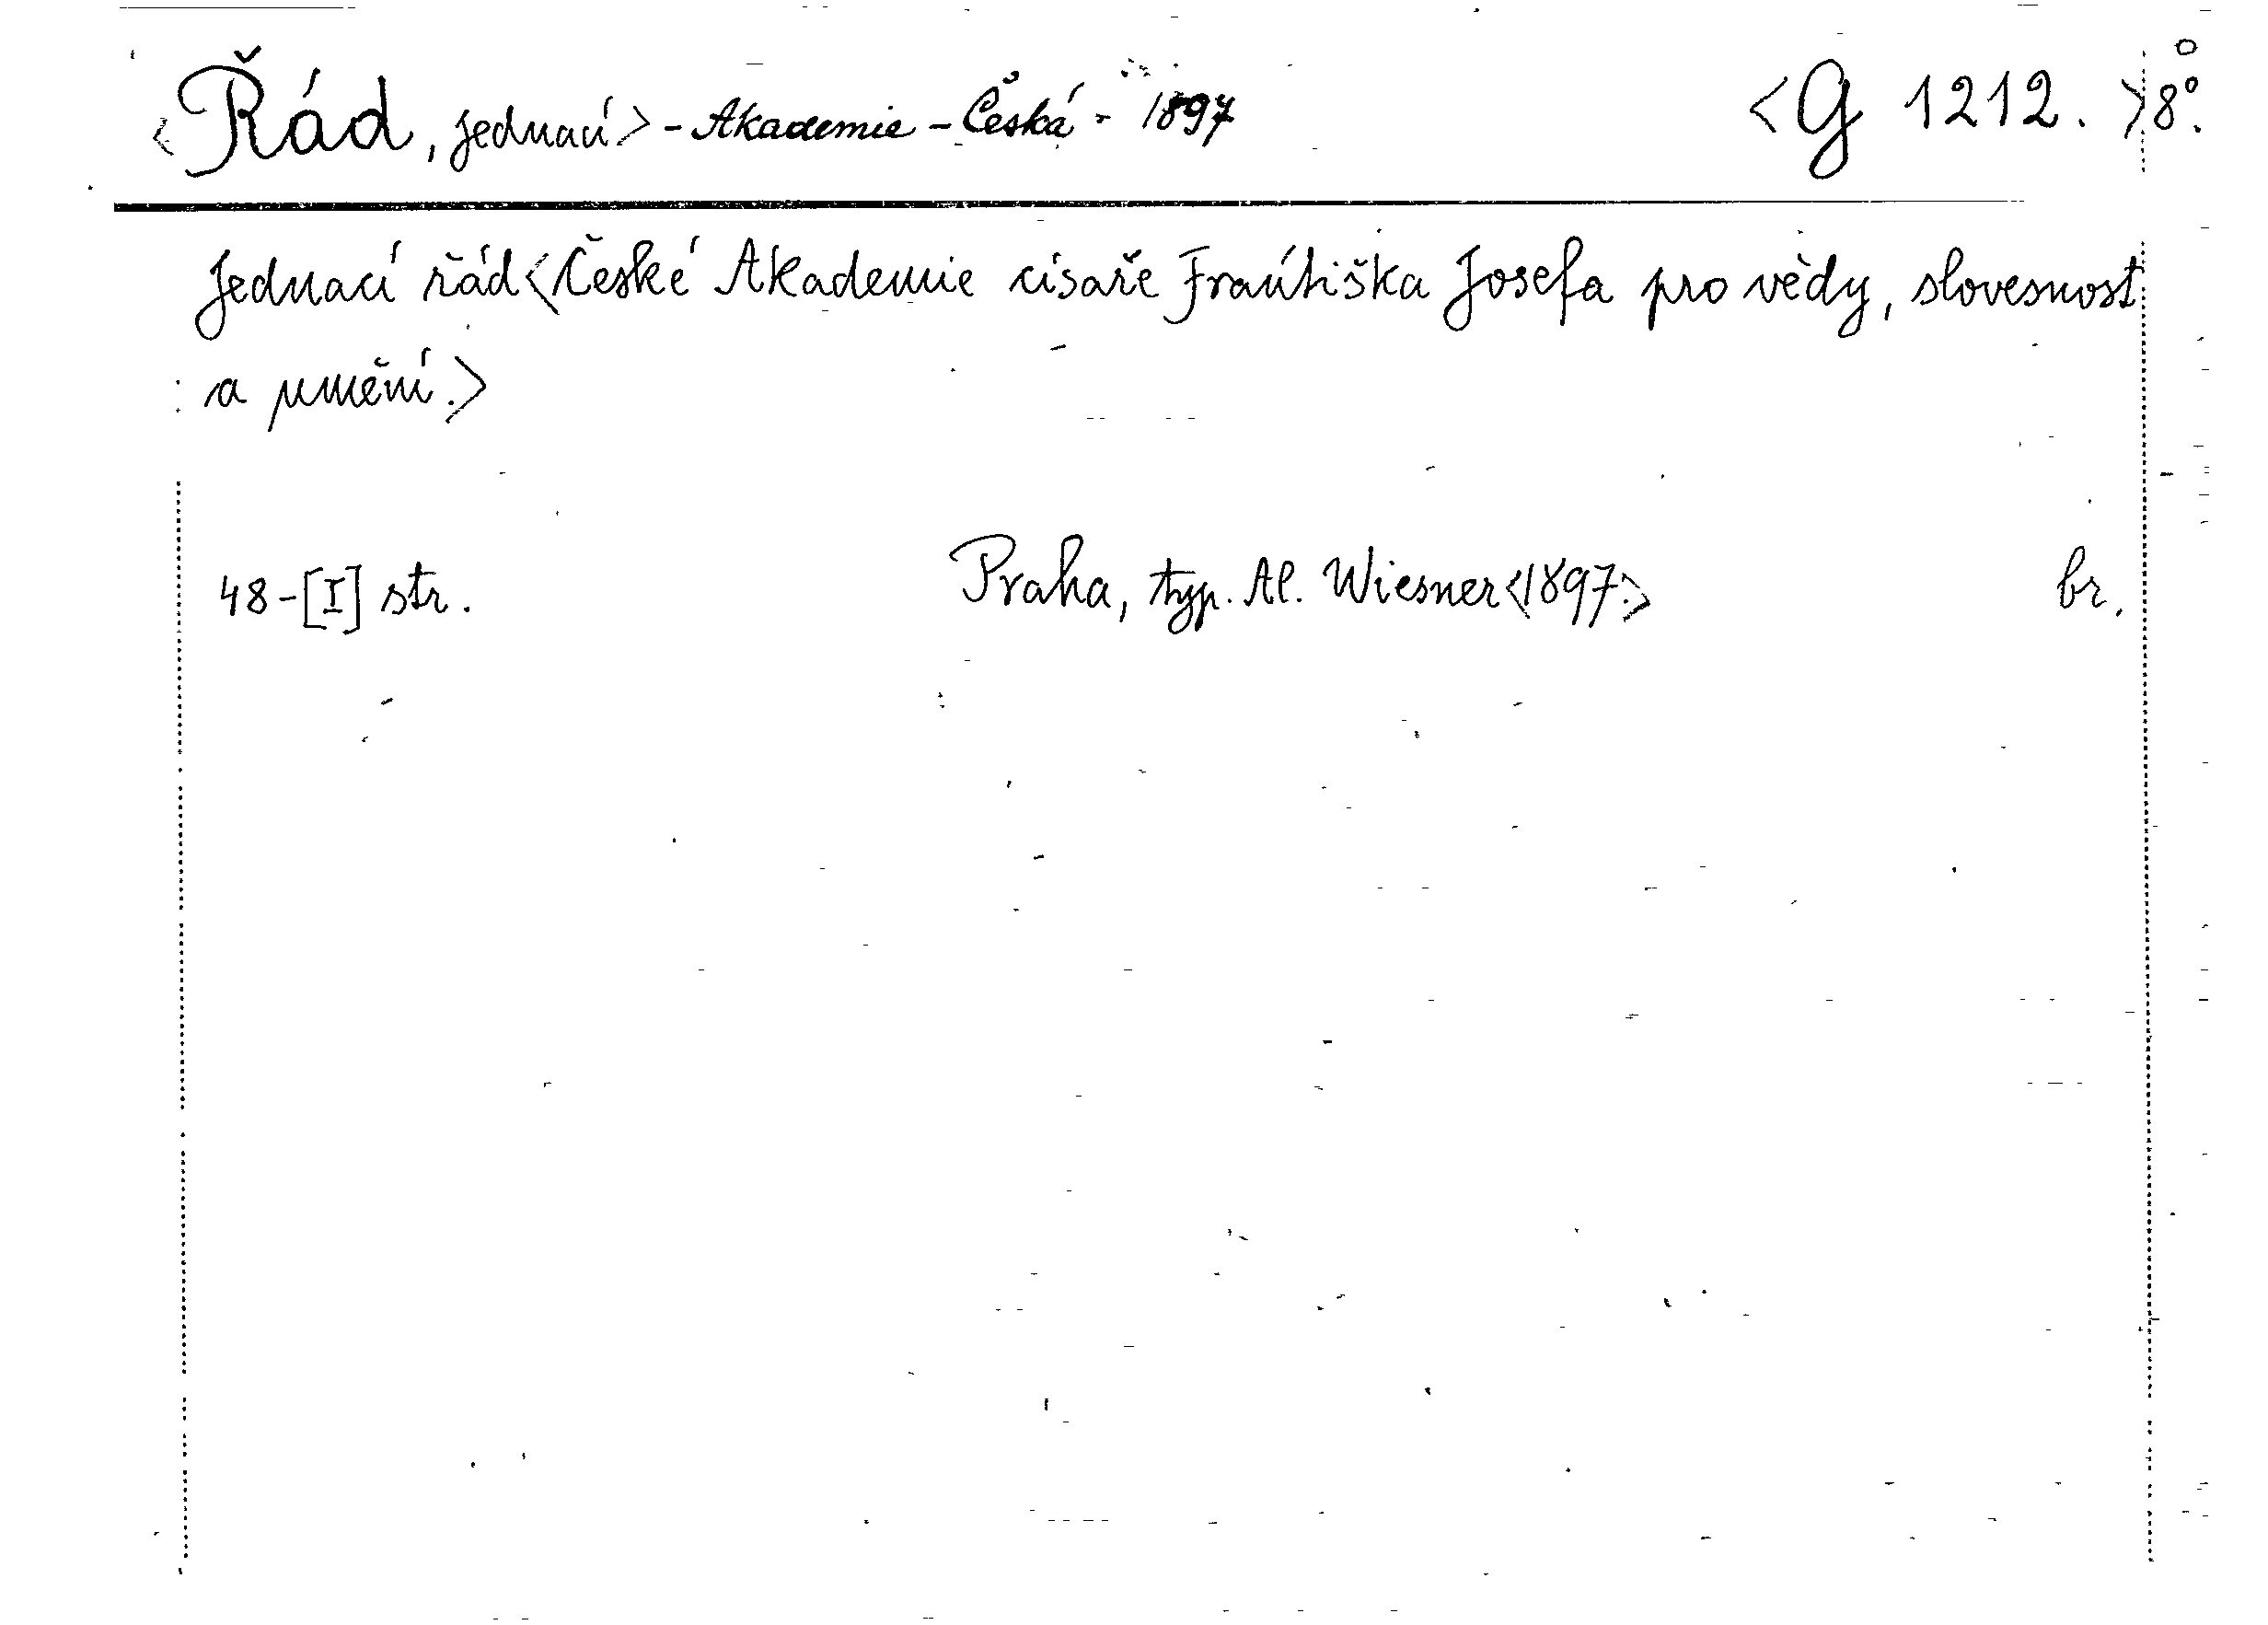 <Řád, jednací> - Akademie - Česká - 1897 <G 1212. >8°.
Jednací řád <České Akademie císaře Františka Josefa pro vědy, slovesnost
a umění.>
48-[I] str. Praha, typ. Al. Wiesner <1897.> br.